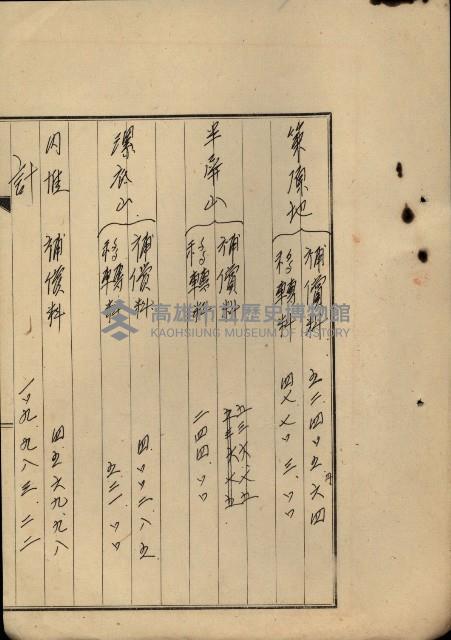 策源地
補償料 五二四〃五六四
移轉料 四七七〃三〃〃
半屏山
補償料 五三六七五
移轉料 二四四〃〃
漯底山
補償料 四〃〃二八五
移轉料 五二一〃〃
內惟 補償料 四五六九九八
計 一〃九九八三二二
高雄市立歷史博物館
KAOHSIUNG MUSEUM OF HISTORY